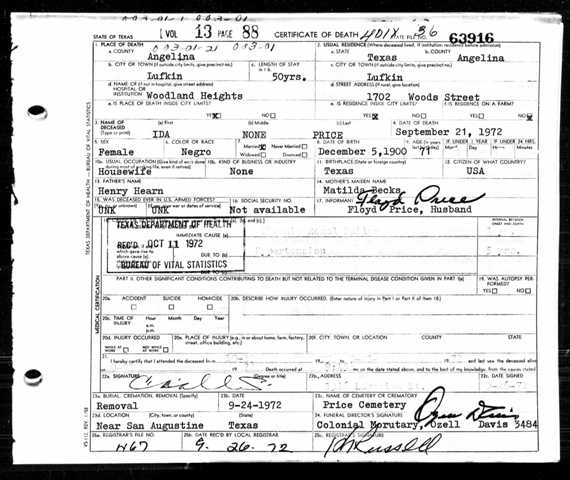 003-01-1 003-01
VOL 13 PAGE 88 CERTIFICATE OF DEATH
STATE OF TEXAS STATE FILE NO. 63916
003-01-21 003-01
1. PLACE OF DEATH 2. USUAL RESIDENCE (Where deceased lived. If institution: residence before admission)
a. COUNTY Angelina a. STATE Texas b. COUNTY Angelina
b. CITY OR TOWN (If outside city limits, give precinct no.) Lufkin c. LENGTH OF STAY 50yrs. c. CITY OR TOWN (If outside city limits, give precinct no.) Lufkin
d. NAME OF (If not in hospital, give street address) HOSPITAL OR INSTITUTION Woodland Heights d. STREET ADDRESS (If rural, give location) 1702 Woods Street
e. IS PLACE OF DEATH INSIDE CITY LIMITS? YES NO e. IS RESIDENCE INSIDE CITY LIMITS? YES NO f. IS RESIDENCE ON A FARM? YES NO
3. NAME OF DECEASED (Type or print) (a) First IDA (b) Middle NONE (c) Last PRICE 4. DATE OF DEATH September 21, 1972
5. SEX Female 6. COLOR OR RACE Negro 7. Married Never Married Widowed Divorced 8. DATE OF BIRTH December 5,1900 71 IF UNDER 1 YEAR IF UNDER 24 HRS.
10a. USUAL OCCUPATION Housewife 10b. KIND OF BUSINESS OR INDUSTRY None 11. BIRTHPLACE (State or foreign country) Texas 12. CITIZEN OF WHAT COUNTRY? USA
13. FATHER'S NAME Henry Hearn 14. MOTHER'S MAIDEN NAME Matilda Becks
15. WAS DECEASED EVER IN U.S. ARMED FORCES? UNK UNK 16. SOCIAL SECURITY NO. Not available 17. INFORMANT Floyd Price
Floyd Price, Husband
TEXAS DEPARTMENT OF HEALTH
IMMEDIATE CAUSE (a)
REC'D OCT 11 1972
DUE TO (b)
DUE TO (c)
BUREAU OF VITAL STATISTICS
PART II. OTHER SIGNIFICANT CONDITIONS CONTRIBUTING TO DEATH BUT NOT RELATED TO THE TERMINAL DISEASE CONDITION GIVEN IN PART I(a) 19. WAS AUTOPSY PERFORMED? YES NO
20a. ACCIDENT SUICIDE HOMICIDE 20b. DESCRIBE HOW INJURY OCCURRED. (Enter nature of injury in Part I or Part II of item 18.)
20c. TIME OF INJURY Hour Month Day Year a.m. p.m.
20d. INJURY OCCURRED WHILE AT WORK NOT WHILE AT WORK 20e. PLACE OF INJURY (e.g. in or about home, farm, factory, street, office building, etc.) 20f. CITY, TOWN, OR LOCATION COUNTY STATE
21. I hereby certify that I attended the deceased from and last saw the deceased alive
Death occurred at m. on the date stated above, and to the best of my knowledge, from the causes stated.
22a. SIGNATURE 22b. ADDRESS 22c. DATE SIGNED
23a. BURIAL, CREMATION, REMOVAL (Specify) Removal 23b. DATE 9-24-1972 23c. NAME OF CEMETERY OR CREMATORY Price Cemetery
23d. LOCATION (City, town, or county) (State) Near San Augustine Texas 24. FUNERAL DIRECTOR'S SIGNATURE Colonial Morutary, Ozell Davis 3484
25a. REGISTRAR'S FILE NO. 467 25b. DATE REC'D BY LOCAL REGISTRAR 9-26-72 25c. REGISTRAR'S SIGNATURE Russell
TEXAS DEPARTMENT OF HEALTH — BUREAU OF VITAL STATISTICS
MEDICAL CERTIFICATION